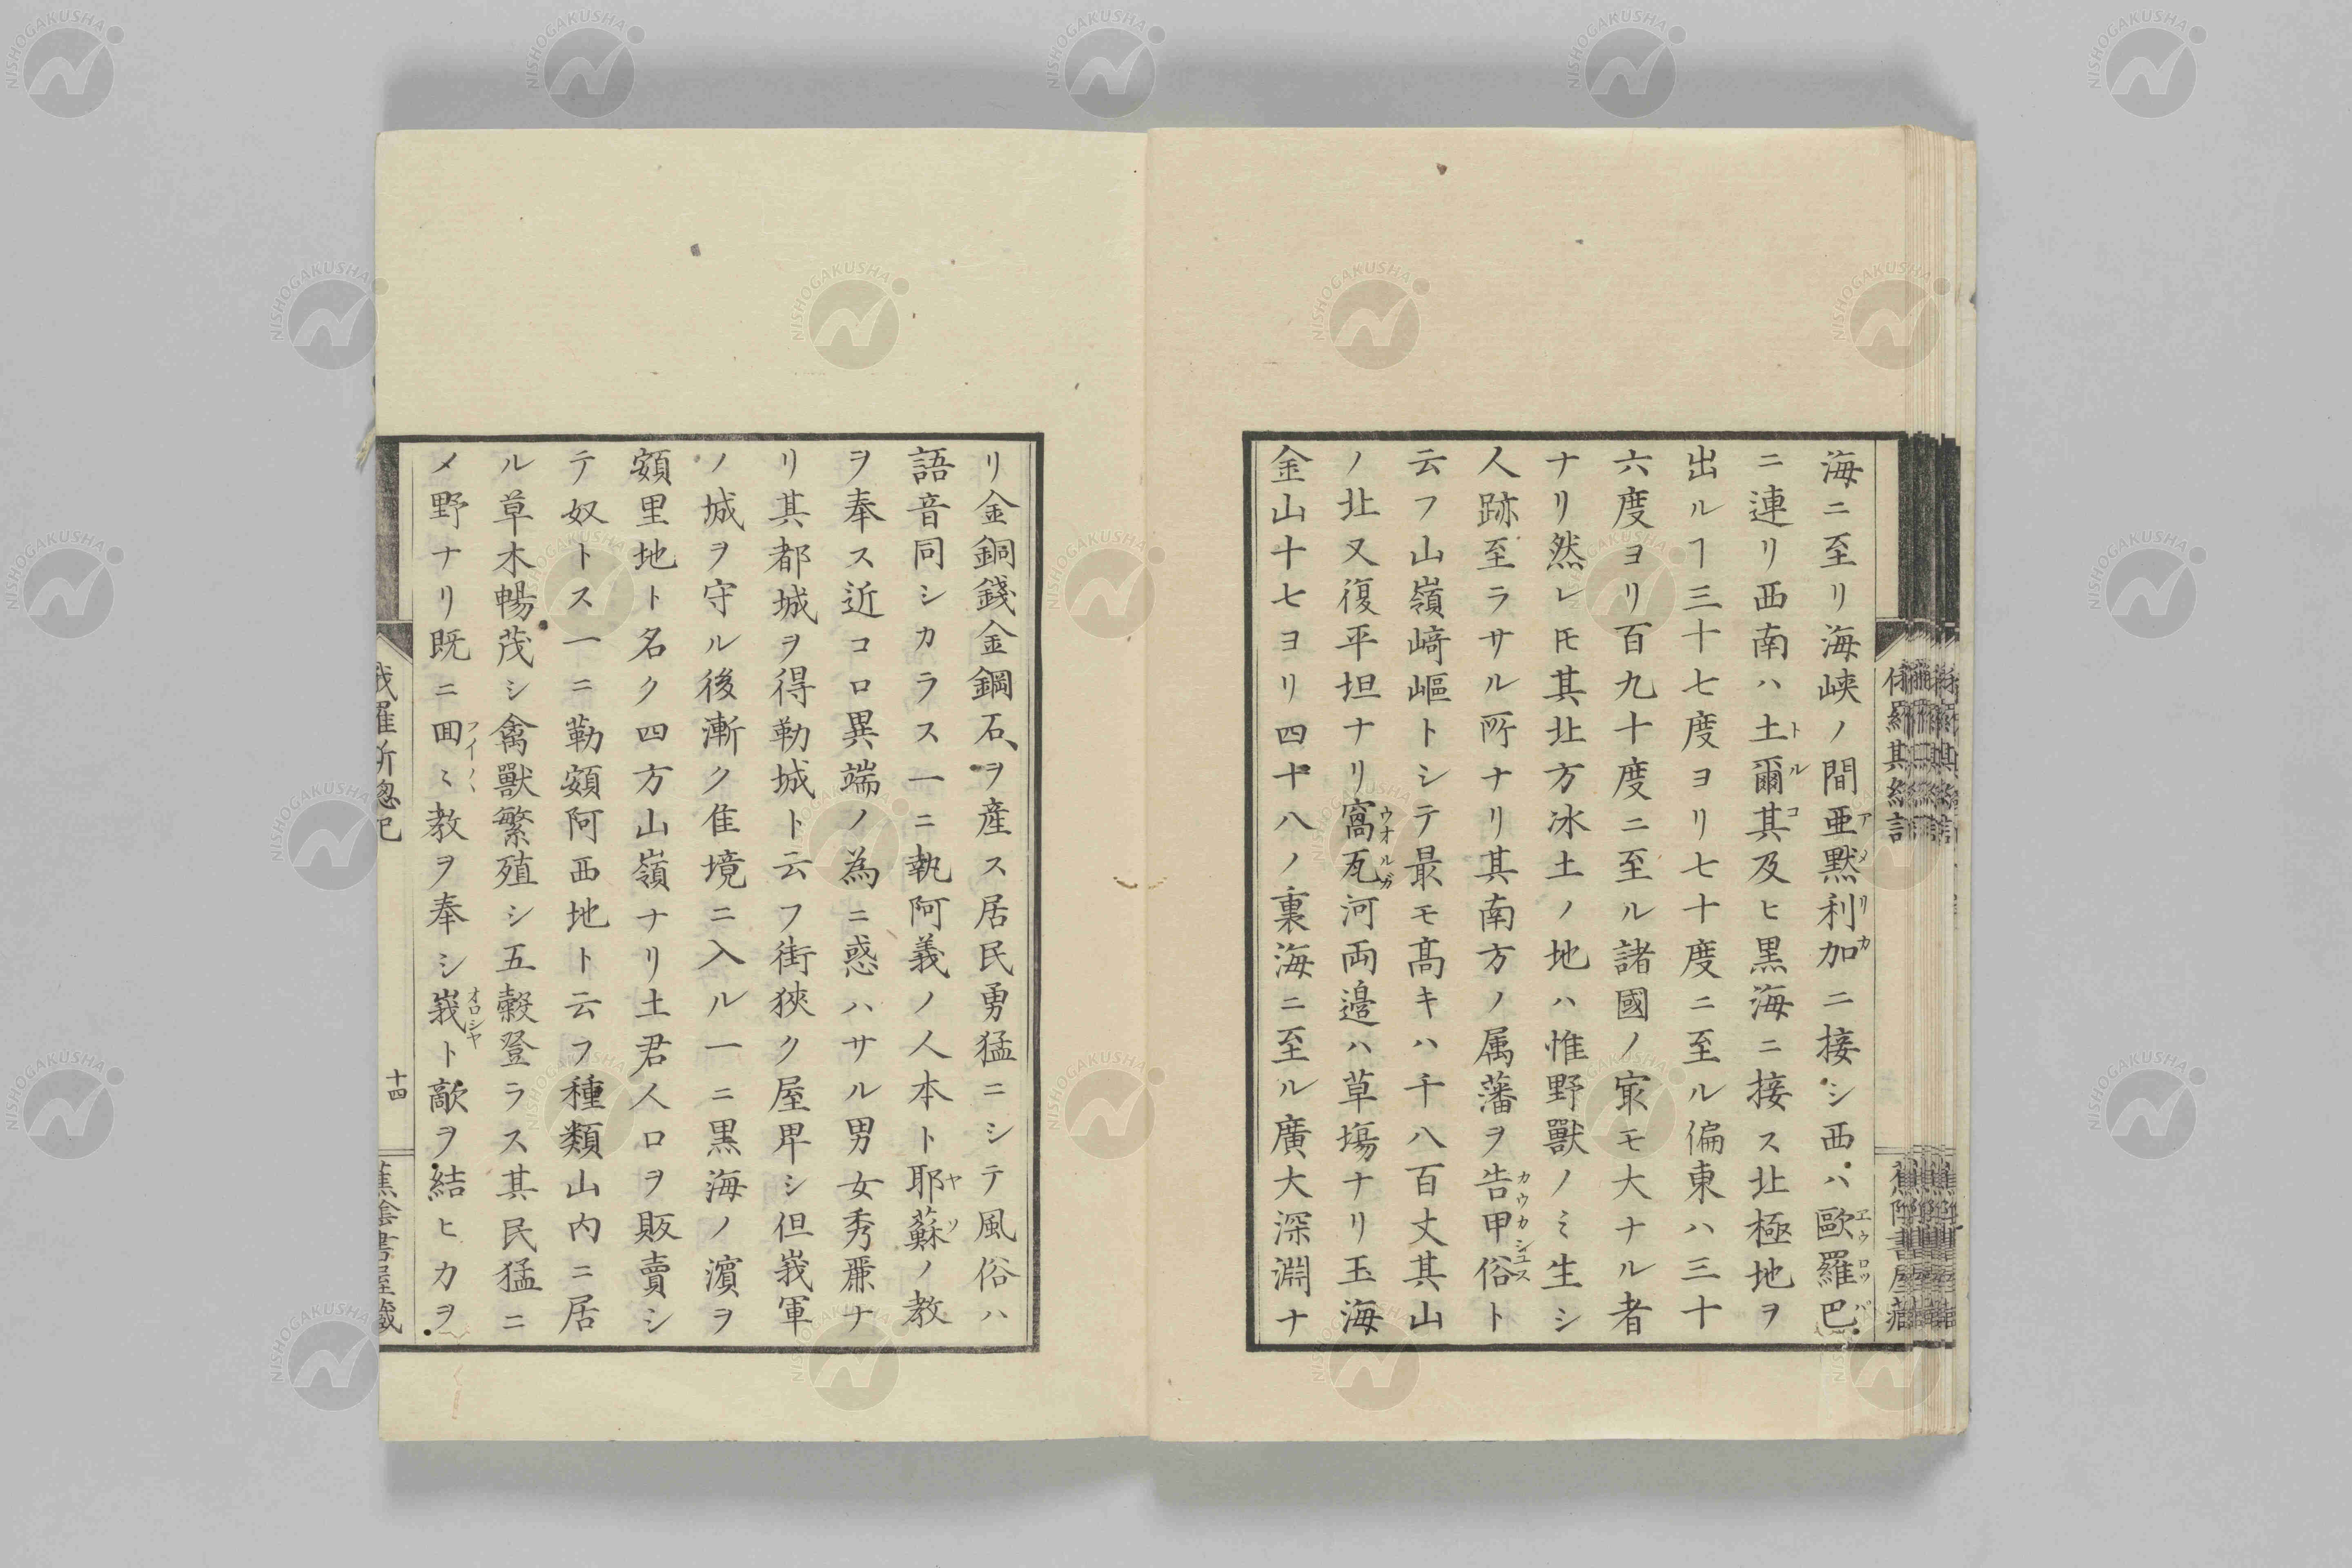 海ニ至リ海峽ノ間亜黙利加ニ接シ西ハ歐羅巴
ニ連リ西南ハ土爾其及ヒ黒海ニ接ス北極地ヲ
出ルヿ三十七度ヨリ七十度ニ至ル偏東ハ三十
六度ヨリ百九十度ニ至ル諸國ノ㝡モ大ナル者
ナリ然レ𪜈其北方冰土ノ地ハ惟野獸ノミ生シ
人跡至ラサル所ナリ其南方ノ属藩ヲ告甲俗ト
云フ山嶺﨑嶇トシテ最モ髙キハ千八百丈其山
ノ北又復平坦ナリ窩瓦河両邉ハ草塲ナリ玉海
金山十七ヨリ四十八ノ裏海ニ至ル廣大深淵ナ
リ金銅錢金鋼石、ヲ産ス居民勇猛ニシテ風俗ハ
語音同シカラス一ニ執阿義ノ人本ト耶蘇ノ教
ヲ奉ス近コロ異端ノ為ニ惑ハサル男女秀㢘ナ
リ其都城ヲ得勒城ト云フ街狹ク屋卑シ但峩軍
ノ城ヲ守ル後漸ク隹境ニ入ル一ニ黒海ノ濵ヲ
頞里地ト名ク四方山嶺ナリ土君人口ヲ販賣シ
テ奴トス一ニ勒頞阿西地ト云フ種類山内ニ居
ル草木暢茂シ禽獸繁殖シ五穀登ラス其民猛ニ
メ野ナリ既ニ囬〻教ヲ奉シ峩ト敵ヲ結ヒカヲ
峩羅斯總記
十四
蕉陰書屋藏